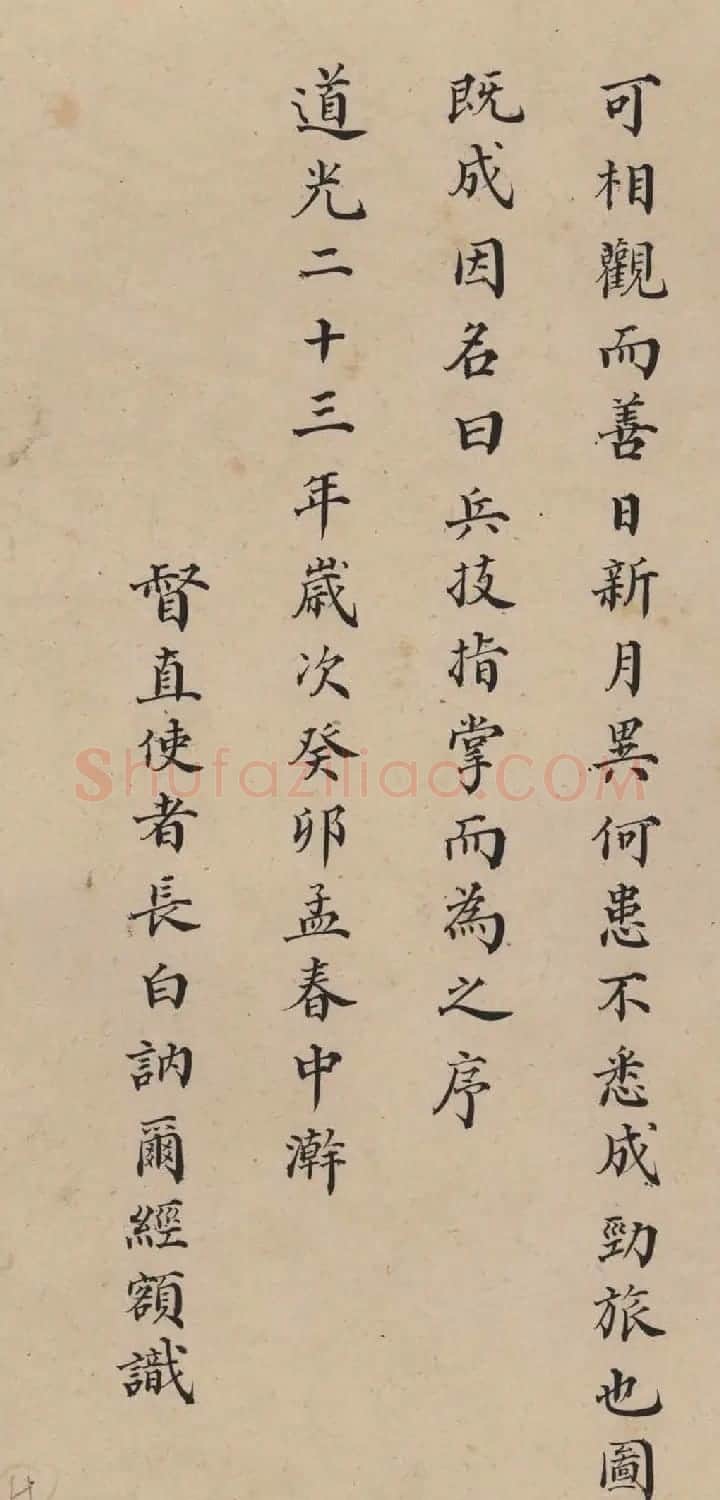 可相觀而善日新月異何患不悉成勁旅也圖
既成因名曰兵技指掌而為之序
道光二十三年歲次癸卯孟春中澣
督直使者長白訥爾經額識
Shufaziliao.COM